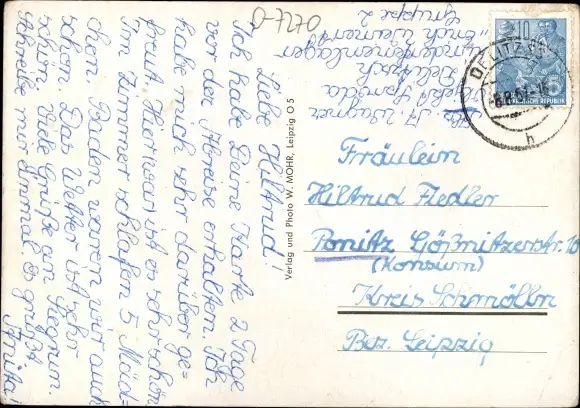 O-7270
Liebe Hiltrud!
Ich habe Deine Karte 2 Tage
vor der Abreise erhalten. Ich
habe mich sehr darüber ge-
freut. Hier ist es sehr schön.
Im Zimmer schlafen 5 Mäd-
chen. Baden waren wir auch
schon. Das Wetter ist sehr
schön. Viele Grüße an Sigrun.
Schreibe mir einmal. Es grüßt
Anita!
A. Wagner
Delitzsch
Kinderferienlager
"Erich Weinert"
Gruppe 2
Verlag und Photo W. MOHR, Leipzig O 5
10
DELITZSCH
h
Fräulein
Hiltrud Fiedler
Ponitz Gößnitzerstr. 10
(Konsum)
Kreis Schmölln
Bez. Leipzig